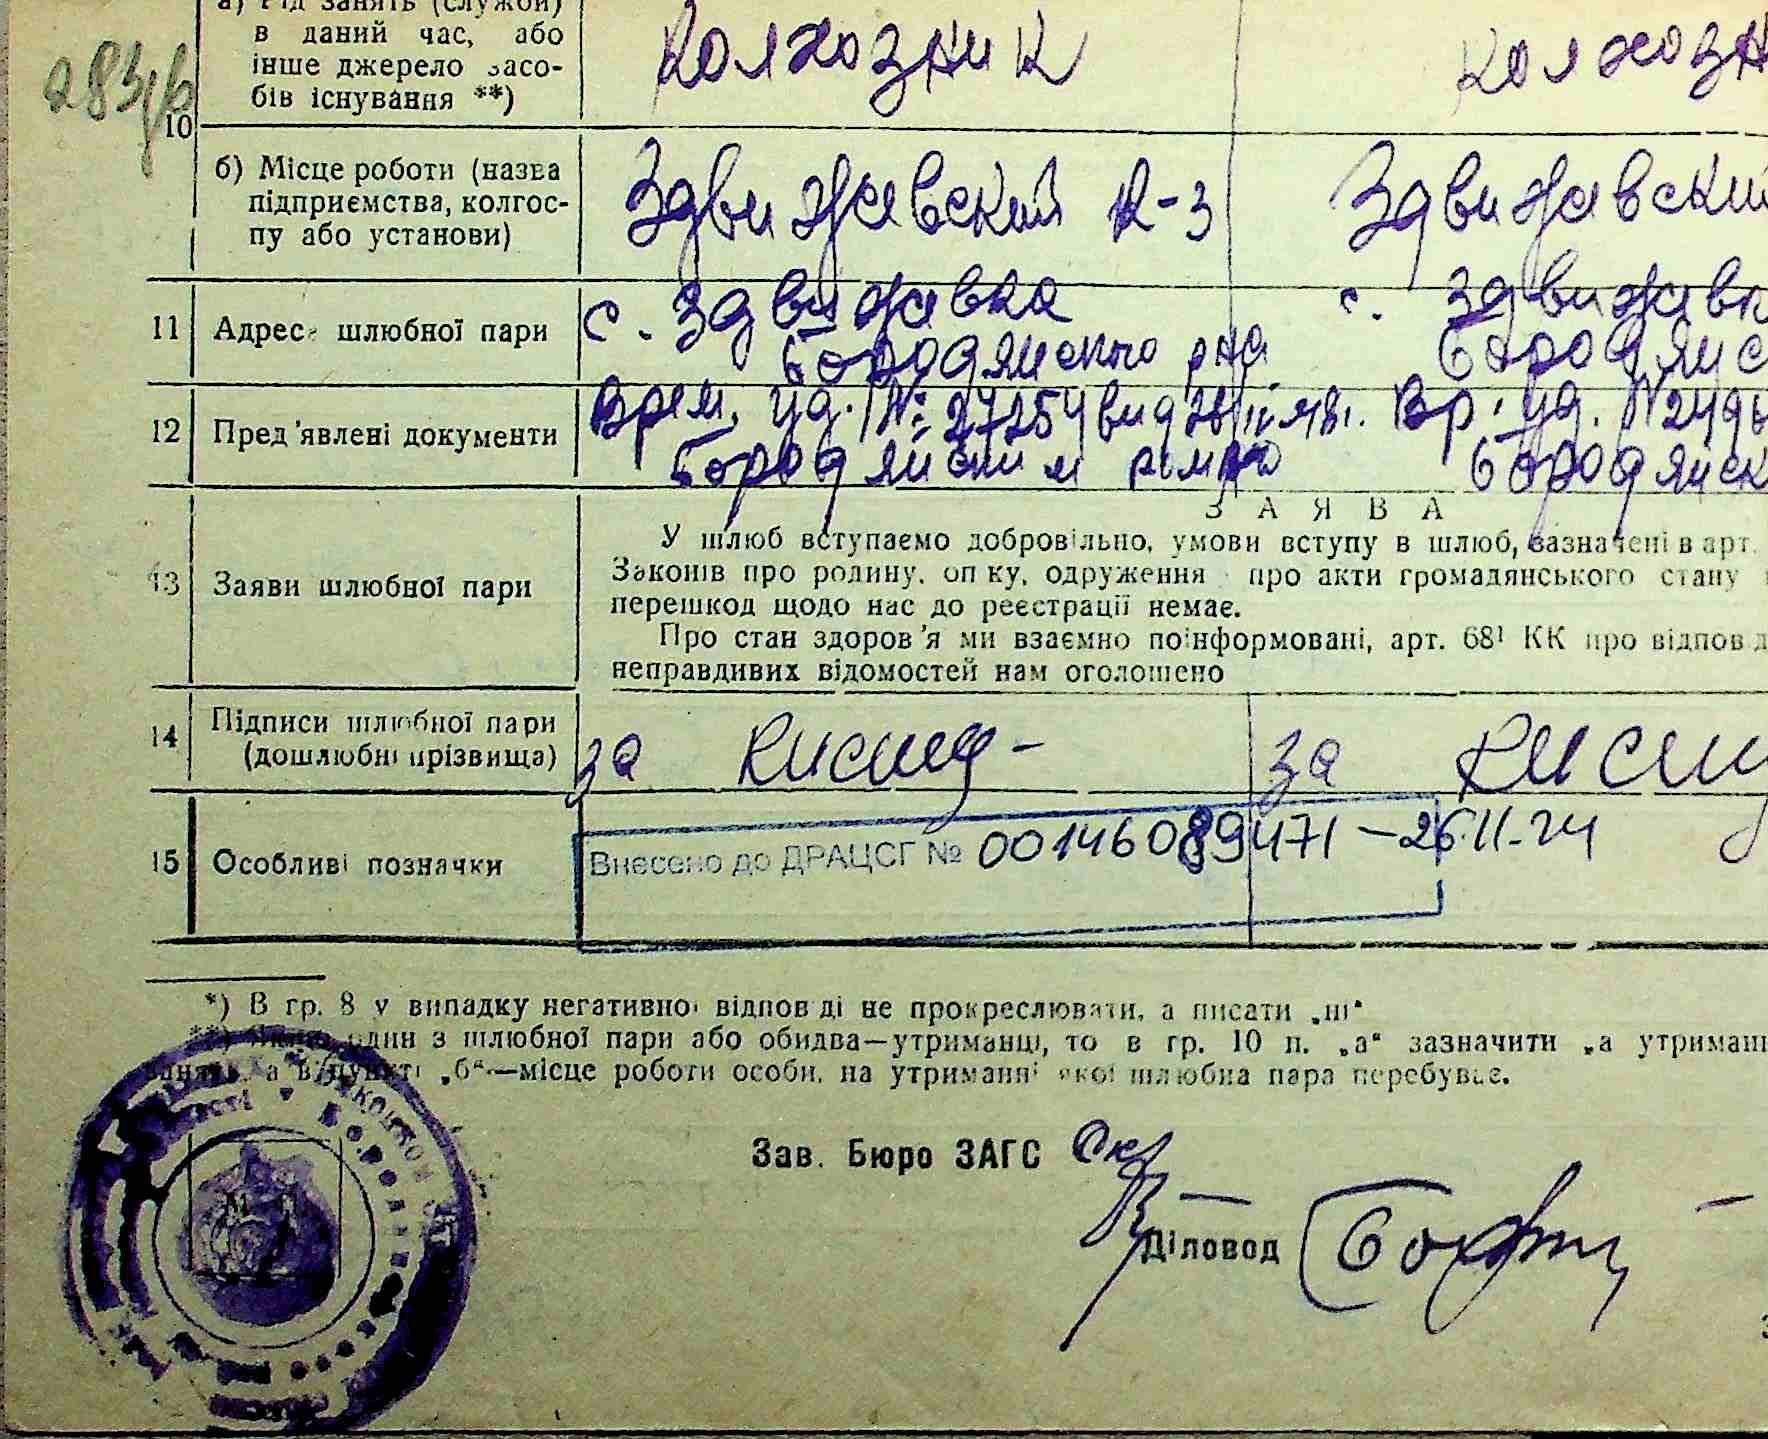 283
а) Рід занять (служби)
в даний час, або
інше джерело засо-
бів існування **)
Колхозник
колхозн
10
б) Місце роботи (назва
підприємства, колгос-
пу або установи)
Здвижевский к-з
Здвижевский
11 Адреса шлюбної пари
с. Здвижевка
Бородянского р-на
с. Здвижевк
Бородянс
12 Пред'явлені документи
Врем. уд. № 27254 вид
Вр. уд. №
Бородянским
Бородянск
З А Я В А
13 Заяви шлюбної пари
У шлюб вступаємо добровільно, умови вступу в шлюб, зазначені в арт.
Законів про родину, опіку, одруження про акти громадянського стану
перешкод щодо нас до реєстрації немає.
Про стан здоров'я ми взаємно поінформовані, арт. 68¹ КК про відповід
неправдивих відомостей нам оголошено
14 Підписи шлюбної пари
(дошлюбні прізвища)
за
за
15 Особливі позначки
Внесено до ДРАЦСГ № 00146089471 – 26.11.24
*) В гр. 8 у випадку негативної відповіді не прокреслювати, а писати „ні“
**) Якщо один з шлюбної пари або обидва—утриманці, то в гр. 10 п. „а“ зазначити „а утриман
занять, а в пункті „б“—місце роботи особи, на утриманні якої шлюбна пара перебуває.
М. П.
Зав. Бюро ЗАГС
Діловод